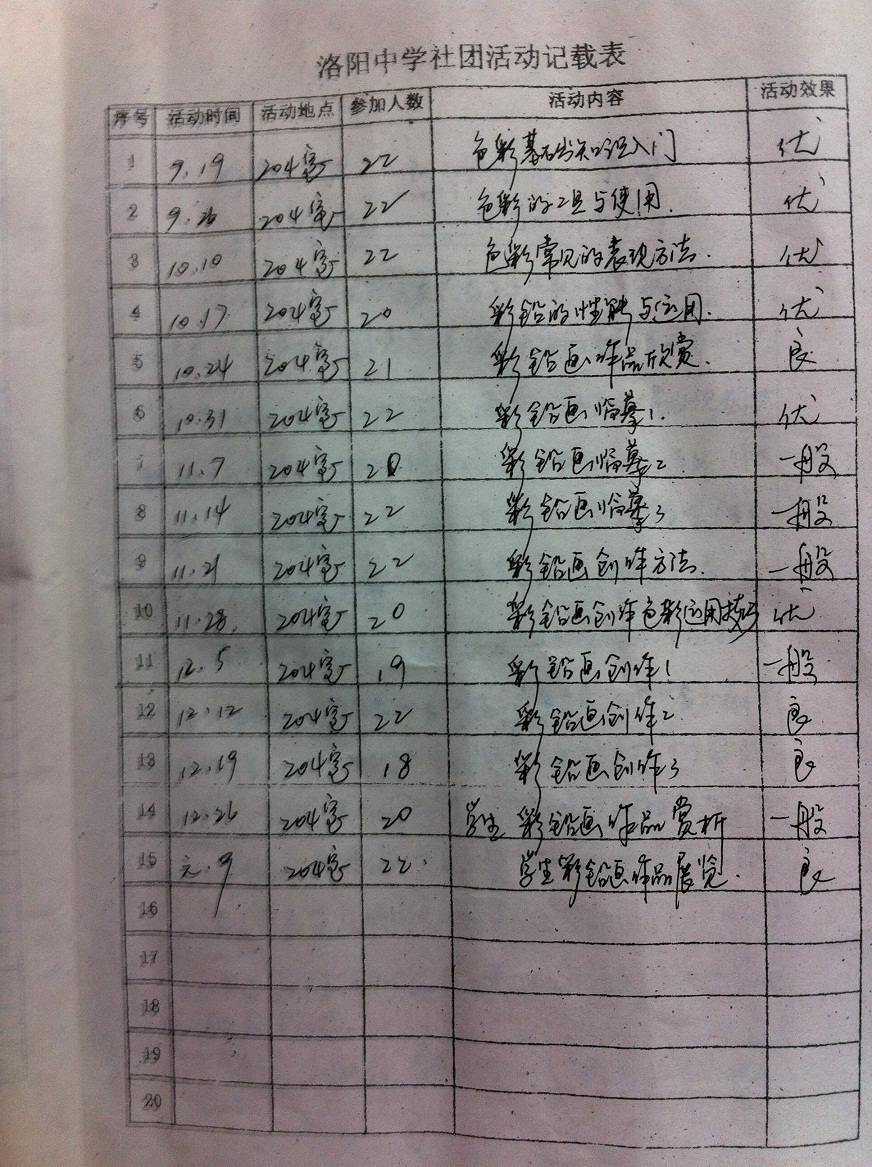 洛阳中学社团活动记载表
序号 活动时间 活动地点 参加人数 活动内容 活动效果
1 9.19 204室 22 色彩基础知识入门 优
2 9.26 204室 22 色彩的工具与使用. 优
3 10.10 204室 22 色彩常见的表现方法. 优
4 10.17 204室 20 彩铅的性能与运用. 优
5 10.24 204室 21 彩铅画作品欣赏. 良
6 10.31 204室 22 彩铅画临摹1. 优
7 11.7 204室 20 彩铅画临摹2 一般
8 11.14 204室 22 彩铅画临摹3 一般
9 11.21 204室 22 彩铅画创作方法. 一般
10 11.28. 204室 20 彩铅画创作色彩运用技巧 优
11 12.5 204室 19 彩铅画创作1 一般
12 12.12 204室 22 彩铅画创作2 良
13 12.19 204室 18 彩铅画创作3 良
14 12.26 204室 20 学生彩铅画作品赏析 一般
15 元.9 204室 22. 学生彩铅画作品展览. 良
16
17
18
19
20